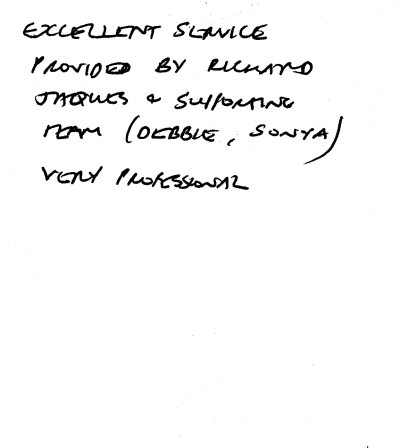 EXCELLENT SERVICE
PROVIDED BY RICHARD
JAQUES & SUPPORTING
TEAM (DEBBIE, SONYA)
VERY PROFESSIONAL